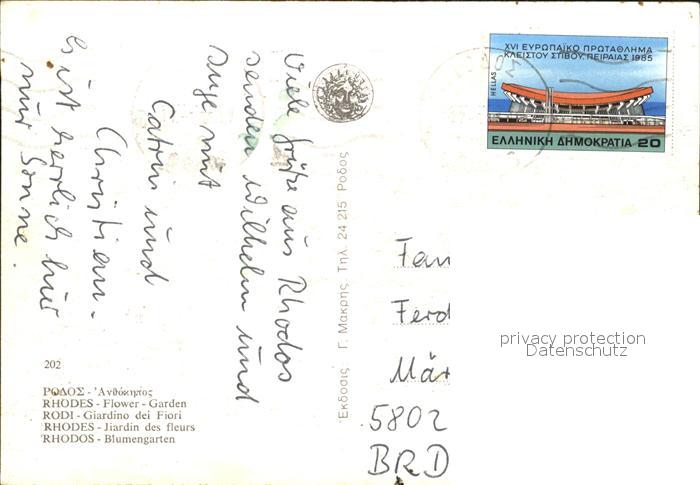 Viele Grüße aus Rhodos
senden Wilhelm und
Inge mit
Catrin und
Christian.
Es ist herrlich hier
nur Sonne.
202
ΡΟΔΟΣ - Ἀνθόκηπος
RHODES - Flower - Garden
RODI - Giardino dei Fiori
RHODES - Jiardin des fleurs
RHODOS - Blumengarten
Ἐκδοσις Γ. Μακρης Τηλ. 24 215 Ροδος
XVI ΕΥΡΩΠΑΪΚΟ ΠΡΩΤΑΘΛΗΜΑ
ΚΛΕΙΣΤΟΥ ΣΤΙΒΟΥ, ΠΕΙΡΑΙΑΣ 1985
HELLAS
ΕΛΛΗΝΙΚΗ ΔΗΜΟΚΡΑΤΙΑ 20
Fam
Ferd
Mär
5802
BRD
privacy protection
Datenschutz